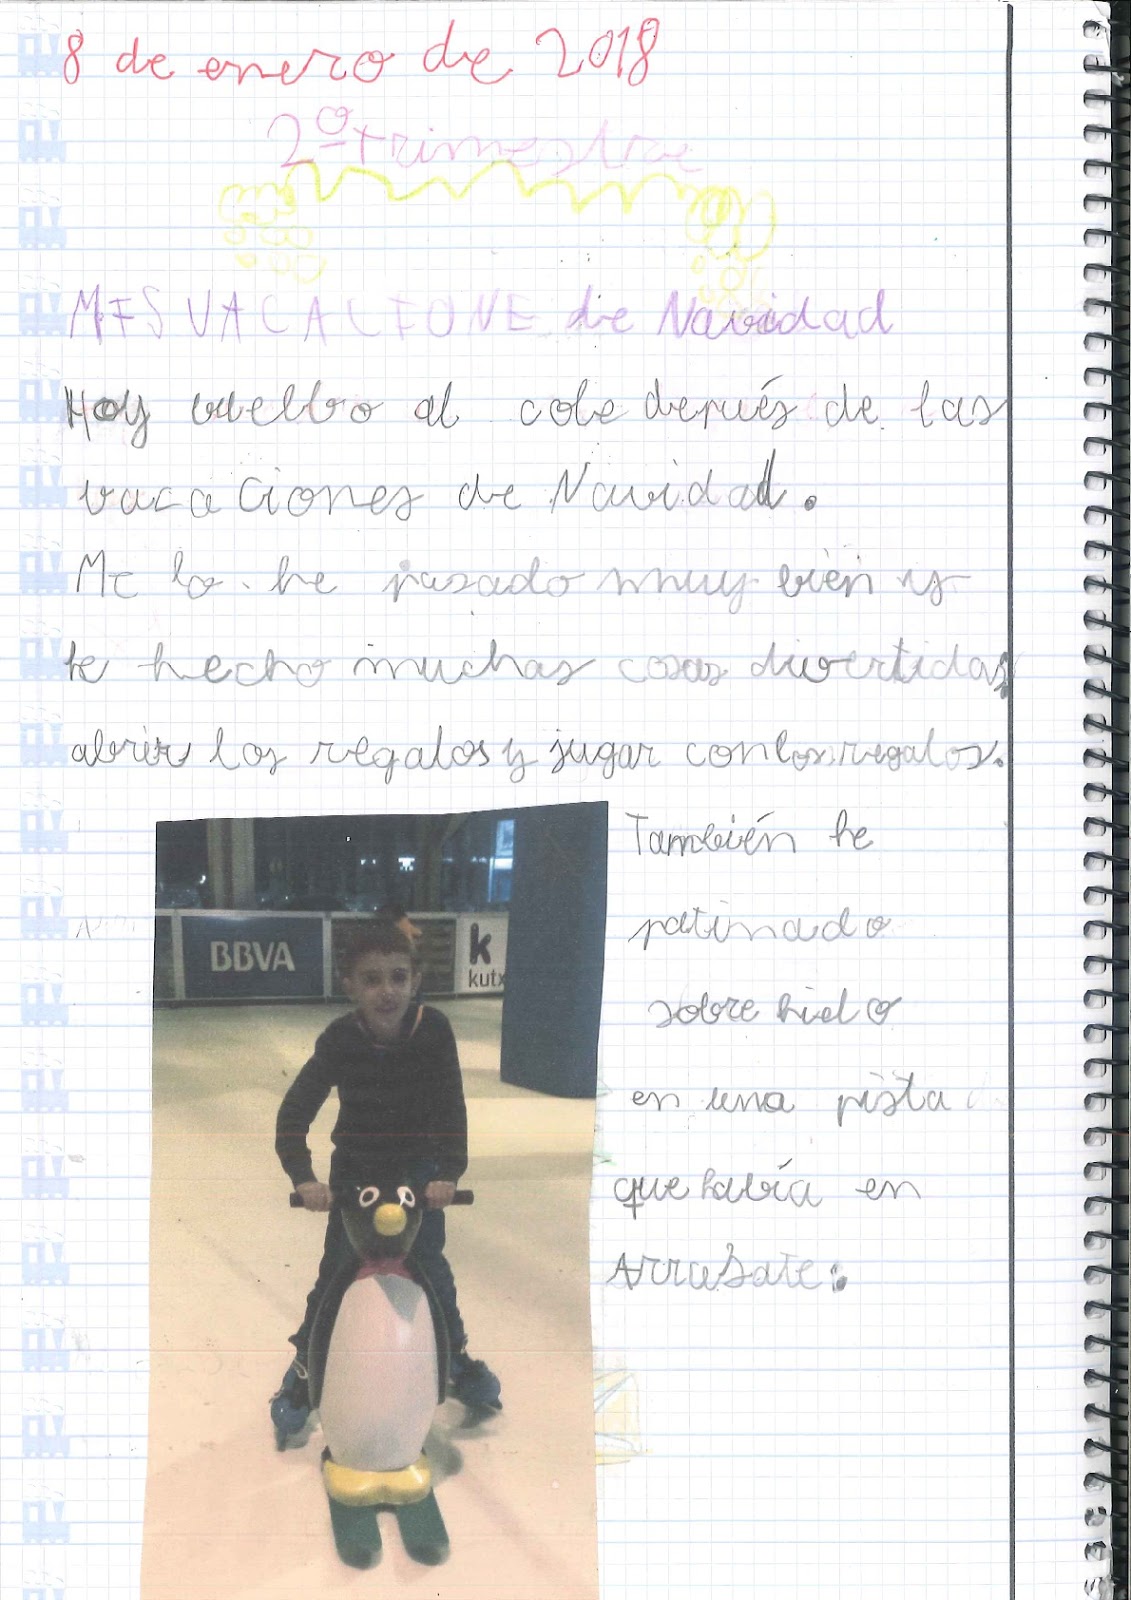 8 de enero de 2018
2º trimestre
MIS VACACIONE de Navidad
Hoy vuelbo al cole depués de las
vacaciones de Navidad.
Me lo he pasado muy bien y
he hecho muchas cosas divertidas,
abrir los regalos y jugar con los regalos.
También he
patinado
sobre hielo
en una pista
que había en
Arrasate.
BBVA
k
kutx